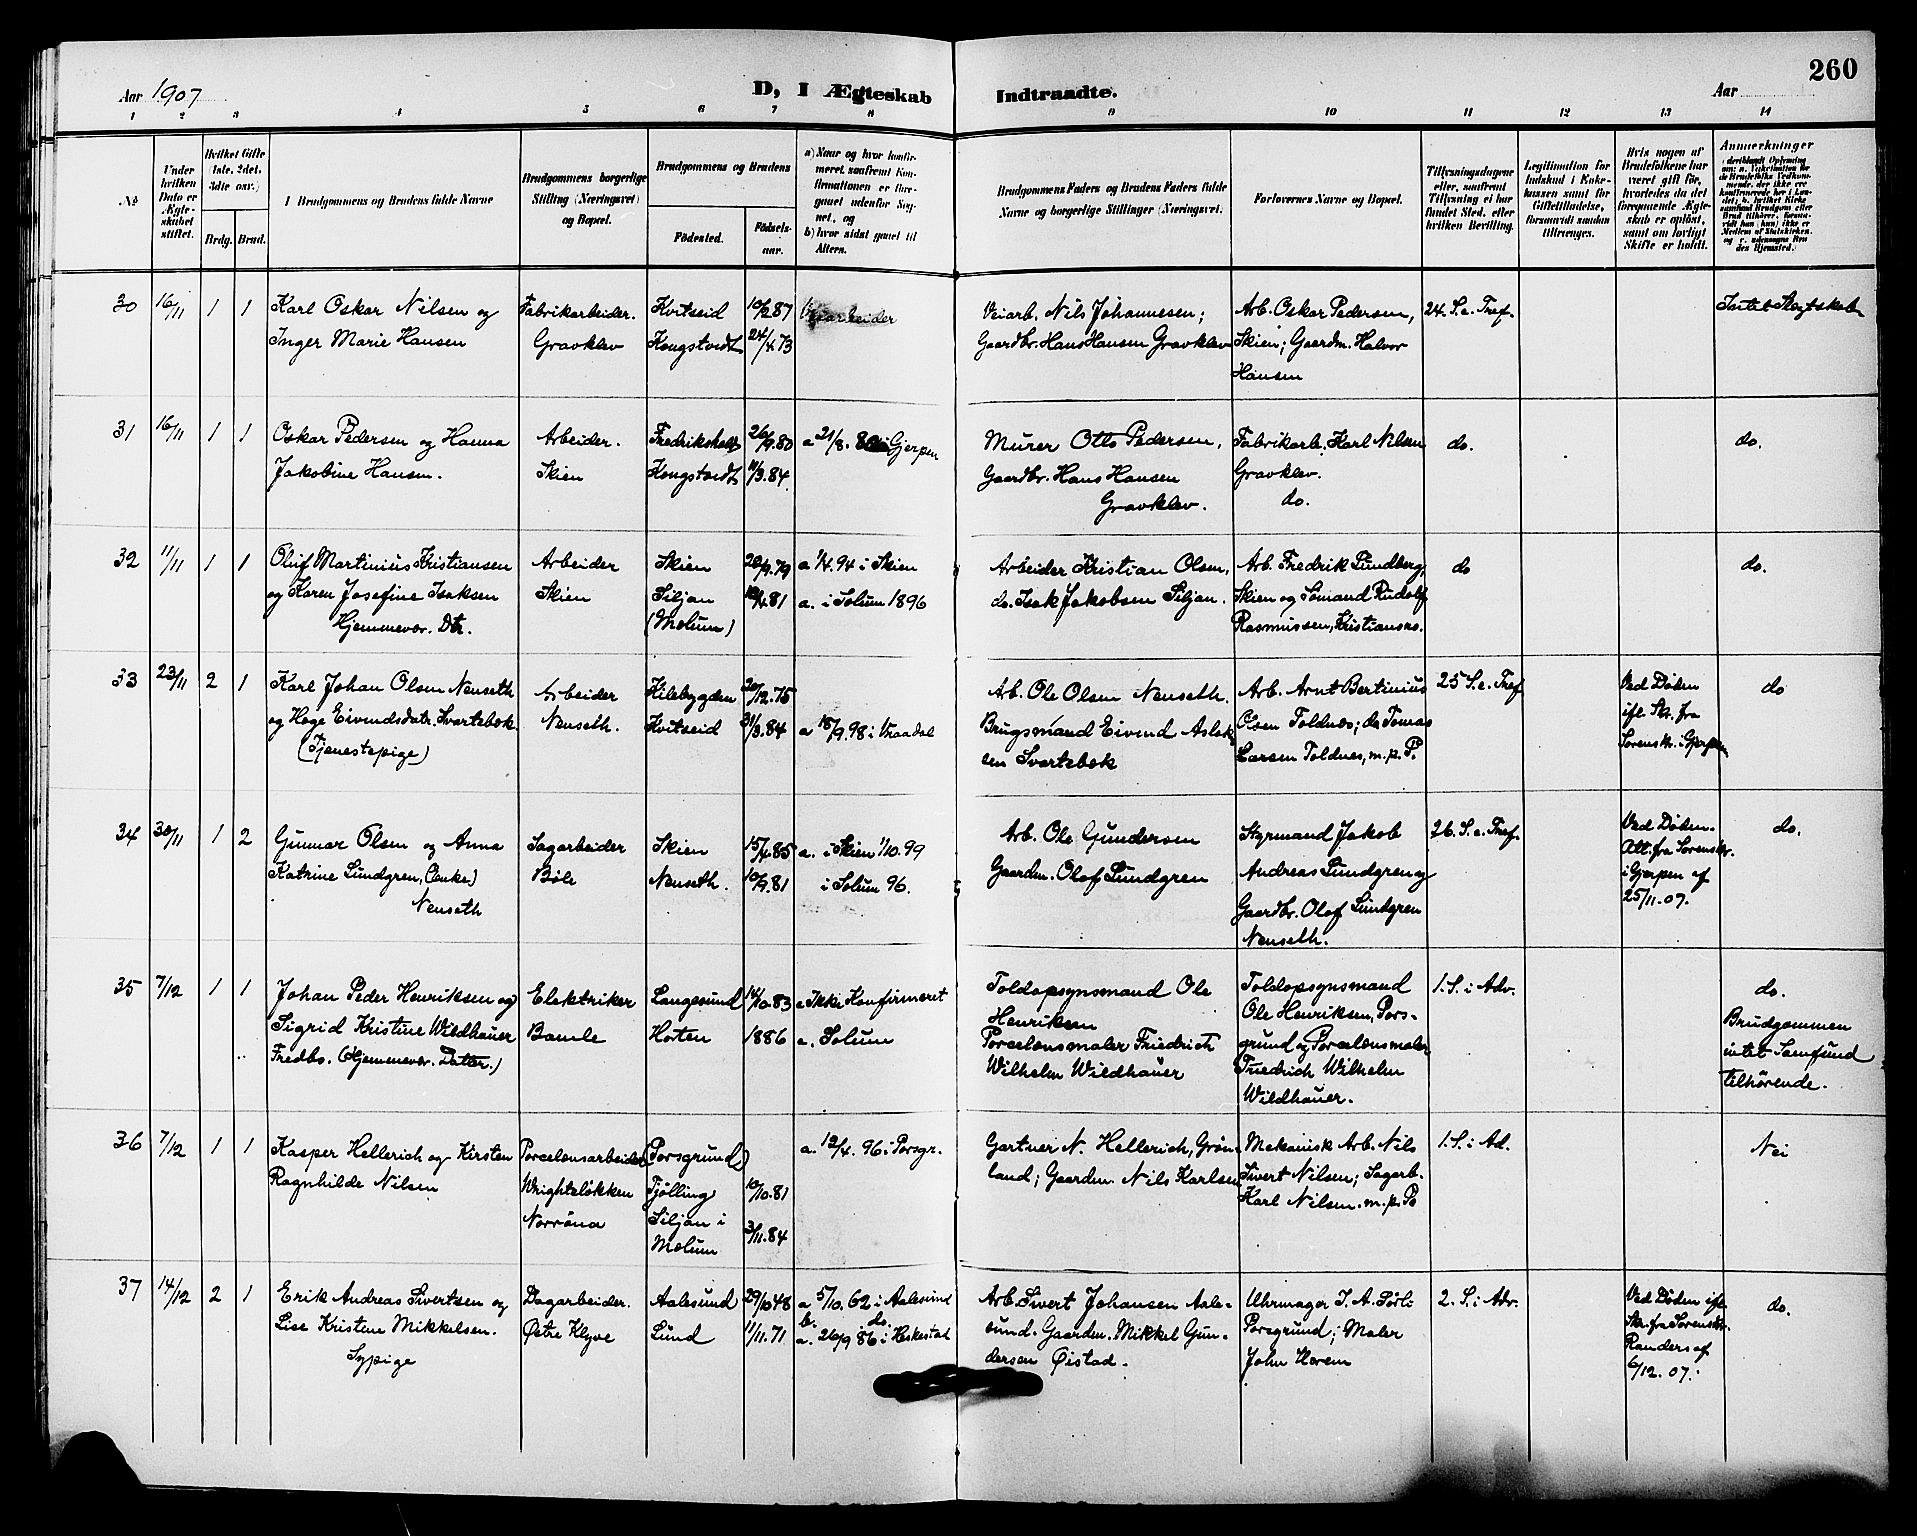 260
Aar 1907
D, I Ægteskab Indtraadte.
Aar
1 2 3 4 5 6 7 8 9 10 11 12 13 14
No
Under hvilken Dato er Ægteskabet stiftet.
Hvilket Gifte (1ste, 2det, 3die osv.)
Brdg. Brud.
I Brudgommens og Brudens fulde Navne
Brudgommens borgerlige Stilling (Næringsvei) og Bopæl.
Brudgommens og Brudens
Födested.
Födselsaar.
a) Naar og hvor konfirmeret, saafremt Konfirmationen er foregaaet udenfor Sognet, og
b) hvor sidst gaaet til Alters.
Brudgommens Faders og Brudens Faders fulde Navne og borgerlige Stillinger (Næringsvei.
Forlovernes Navne og Bopæl.
Tillysningsdagene eller, saafremt Tillysning ei har fundet Sted, efter hvilken Bevilling.
Legitimation for Indskud i Enkekassen samt for Giftetilladelse, forsaavidt saadan tiltrænges.
Hvis nogen af Brudefolkene har været gift för, hvorledes da det foregaaende Ægteskab er oplöst, samt om lovligt Skifte er holdt.
Anmærkninger
30 16/11 1 1
Karl Oskar Nilsen og
Inger Marie Hansen
Fabrikarbeider.
Gravklev
Kvitseid
Kongstvedt
10/2 87
24/4 73
Veiarbeider
Veiarb. Nils Johannesen;
Gaardbr. Hans Hansen Gravklev
Arb. Oskar Pedersen,
Skien; Gaardm. Halvor
Hansen
24. S. e. Tref.
Intet Slegtskab
31 16/11 1 1
Oskar Pedersen og Hanna
Jakobine Hansen.
Arbeider.
Skien
Fredrikshald
Kongstvedt
26/9.80
11/3.84
a 21/8. i Gjerpen
Murer Otto Pedersen,
Gaardbr. Hans Hansen
Gravklev.
Fabrikarb. Karl Nilsen
Gravklev.
do.
do.
do.
32 11/11 1 1
Oluf Martinius Kristiansen
og Karen Josefine Isaksen
Hjemmevær. Dtr.
Arbeider
Skien
Skien
Siljan
(Mælum)
20/9.79
10/4.81
a 1/4. 94 i Skien
a. i Solum 1896
Arbeider Kristian Olsen,
do. Isak Jakobsen Siljan.
Arb. Fredrik Lundberg,
Skien og Sømand Rudolf
Rasmussen, Kristians.
do
do.
33 23/11 2 1
Karl Johan Olsen Nenseth
og Hæge Eivendsdatr. Svartebæk.
(Tjenestepige)
Arbeider
Nenseth.
Kilebygden
Kvitseid
20/12.75
31/3.84
a 18/9. 98 i Vraadal
Arb. Ole Olsen Nenseth.
Brugsmand Eivind Aslak
sen Svartebæk
Arb. Arnt Bertinius
Olsen Toldnæs; do Tomas
Larsen Toldnes, m.p. P.
25 S. e. Tref
Ved Døden
ifl. Sk. fra
Sorensk. i Gjerpen
do
34 30/11 1 2
Gunnar Olsen og Anna
Katrine Lundgren, (Enke)
Nenseth
Sagarbeider
Bøle
Skien
Nenseth.
15/4.85
10/9.81
a. i Skien 1/10. 99
i Solum 96.
Arb. Ole Gundersen
Gaardm. Olof Lundgren
Styrmand Jakob
Andreas Lundgren og
Gaardbr. Olof Lundgren
Nenseth.
26. S. e. Tref.
Ved Døden.
Att. fra Sorenskr.
i Gjerpen af
25/11. 07.
do.
35 7/12 1 1
Johan Peder Henriksen og
Sigrid Kristine Wildhauer
Fredbo. (Hjemmevær. Datter.)
Elektriker
Bamle
Langesund
Horten
14/10.83
1886
a Ikke Konfirmeret
a. Solum
Toldopsynsmand Ole
Henriksen
Porcelænsmaler Friedrich
Wilhelm Wildhauer
Toldopsynsmand
Ole Henriksen, Pors-
grund og Porcelænsmaler
Friedrich Wilhelm
Wildhauer.
1. S. i Adv.
do.
Brudgommen
intet Samfund
tilhørende.
36 7/12 1 1
Kasper Hellerich og Kirsten
Ragnhilde Nilsen
Porcelænsarbeider
Wrightsløkken
Norrøna
(Porsgrund)
Tjølling
Siljan i
Mælum
10/10.81
3/11.84
a. 12/4. 96 i Porsgr.
Gartner N. Hellerich, Grøn-
land; Gaardm. Nils Karlsen
Mekanisk Arb. Nils
Sivert Nilsen; Sagarb.
Karl Nilsen. m.p. P
1. S. i Ad.
Nei
37 14/12 2 1
Erik Andreas Sivertsen og
Lise Kristine Mikkelsen.
Sypige
Dagarbeider.
Østre Klyve
Aalesund
Lund
29/10 48
1/11. 71
a 5/10. 62 i Aalesund
b. do.
a. 26/9 86 i Heskestad
Arb. Sivert Johansen Aale-
sund. Gaardm. Mikkel Gun-
dersen Øistad.
Uhrmager I. A. Sørli
Porsgrund; Maler
John Herem
2. S. i Adv.
Ved Døden ifl.
Sk. fra Sorensk.
Randers af
6/12. 07.
do.